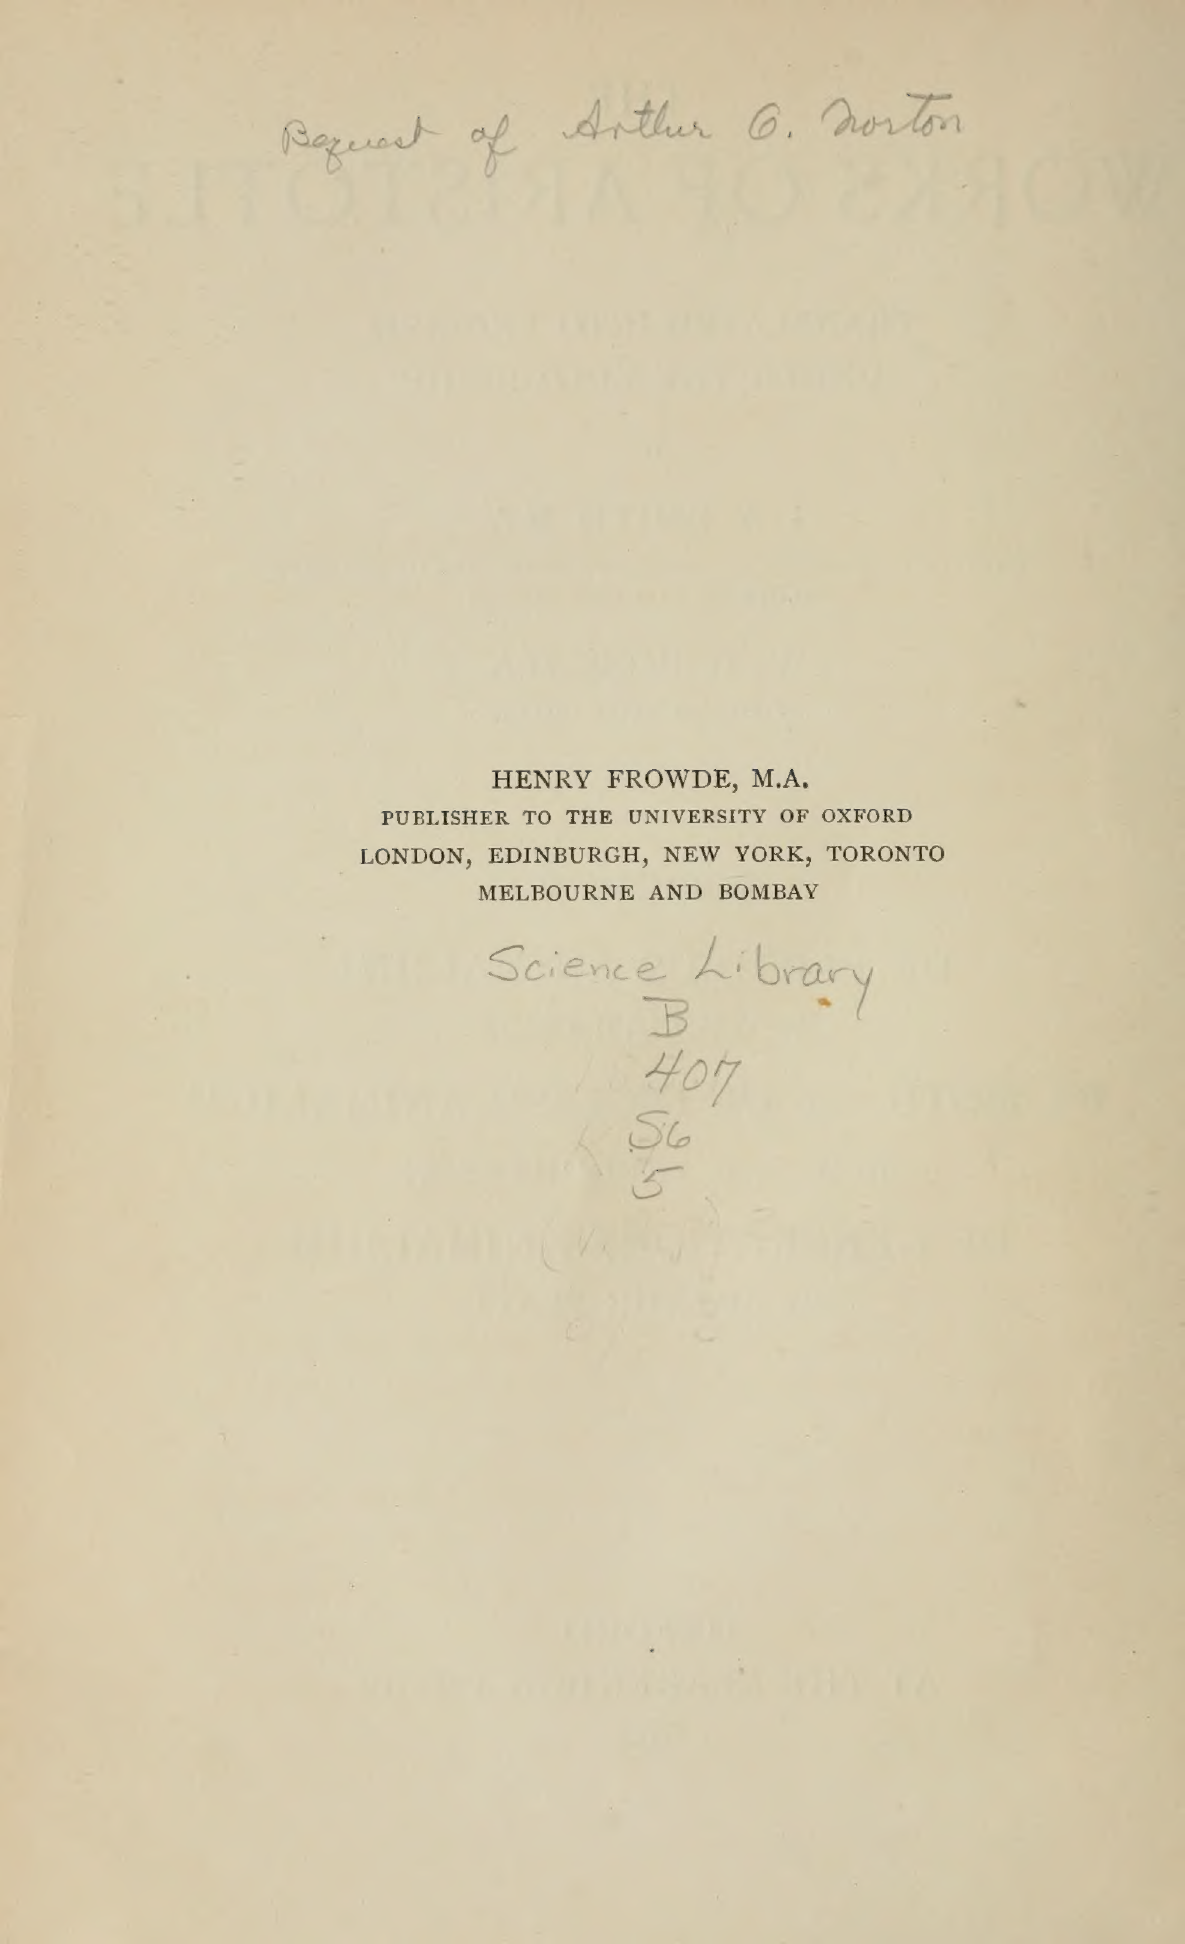 Bequest of Arthur O. Norton
HENRY FROWDE, M.A.
PUBLISHER TO THE UNIVERSITY OF OXFORD
LONDON, EDINBURGH, NEW YORK, TORONTO
MELBOURNE AND BOMBAY
Science Library
B
407
S6
5